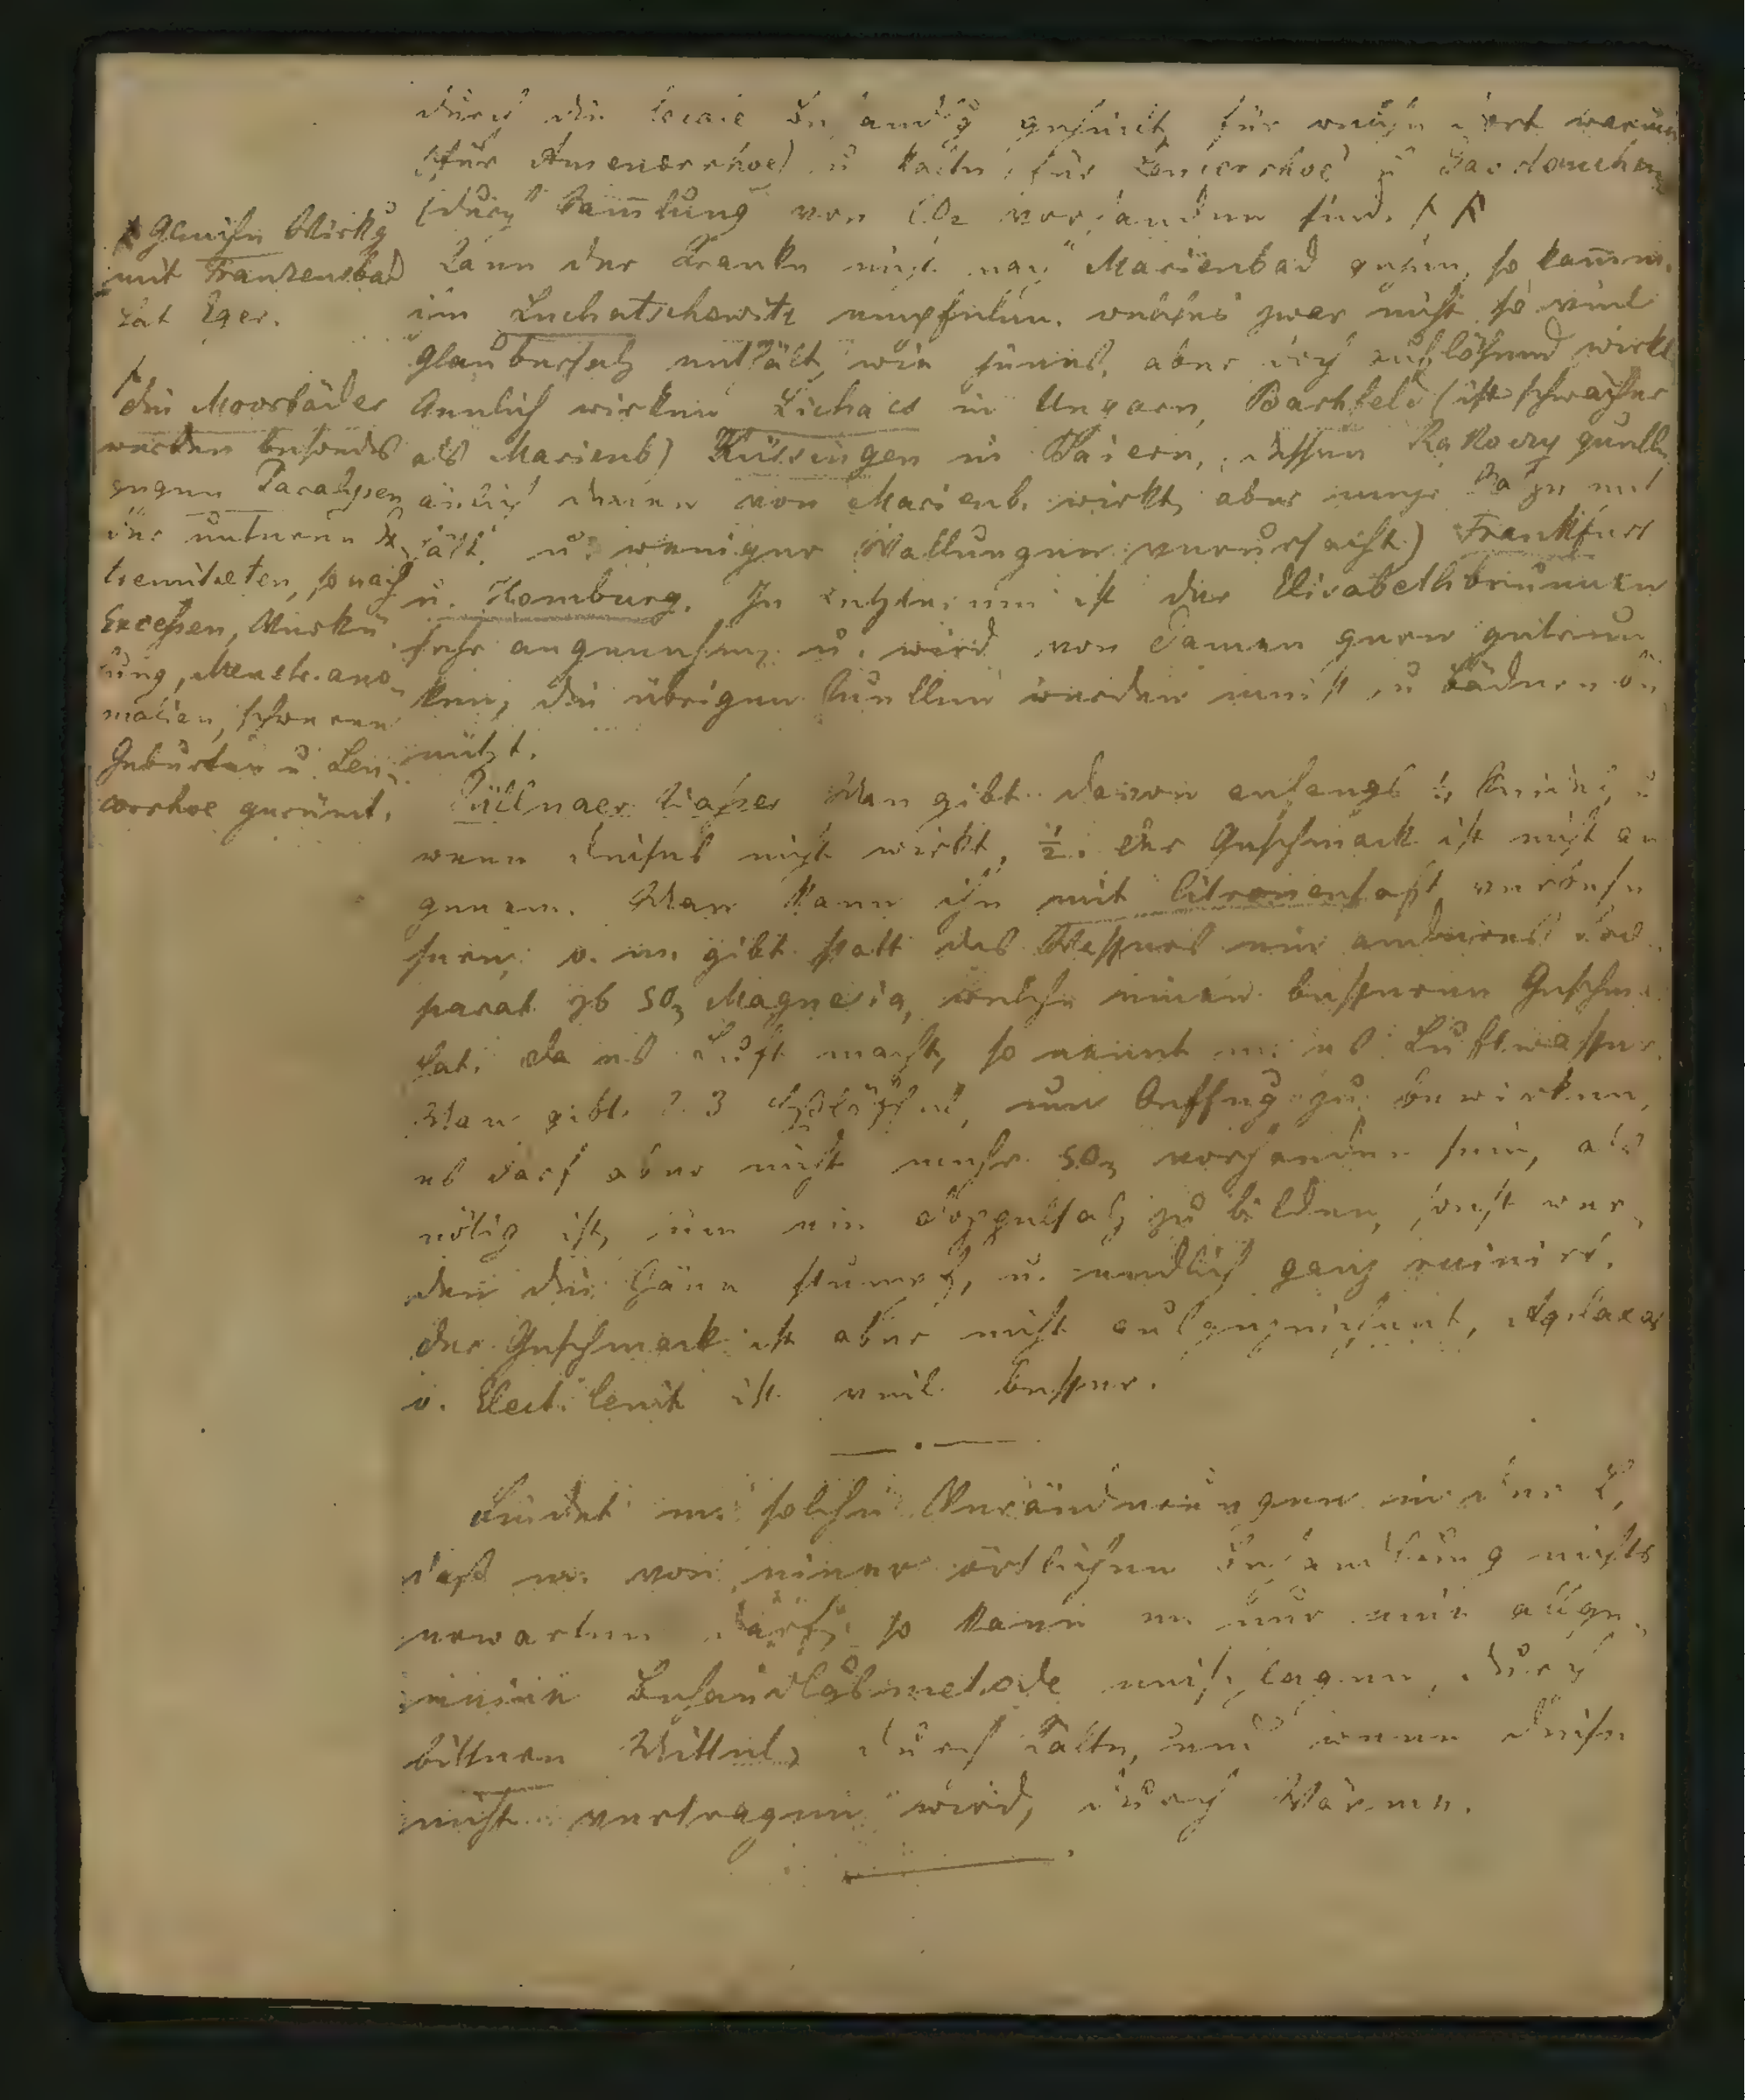 durch die locale Behandlg geheilt, für welche dort warme
(für Amenorrhoe) u kalte (für Leucorrhoe) u Gasdouchen
(durch Sammlung von CO2 vorhanden sind.
Kann der Kranke nicht nach Marienbad gehen, so kann m.
ihn Luchatschowitz empfehlen, welches zwar nicht so viel
Glaubersalz enthält, wie jenes, aber doch auflösend wirkt
Aenlich wirken Lichacs in Ungarn, Barthfeld (ist schwächer
als Marienb) Kissingen in Baiern, dessen Rakoczy quelle
änlich denen von Marienb. wirkt, aber mehr zu ent
hält, u. weniger Wallungen verursacht) Frankfurt
u. Homburg. In letzterem ist der Elisabethbrunnen
sehr angenehm, u. wird von Damen gern getrun
ken, die übrigen Quellen werden meist zu Bädern be
nützt.
Püllnaer Wasser Man gibt davon anfangs
wenn dieses nicht wirkt, ½. Der Geschmack ist nicht an
genem. Man kann ihn mit Citronensaft verbessern
o. m. gibt statt des Wassers ein anderes Prä
parat zb SO3 Magnesia, welche einen bessern Geschm
hat. Da es Luft macht, so nennt m. es Luftwasser.
Man gibt 2 3 Esslöffel, um Oeffng zu bewirken,
es darf aber nicht mehr SO3 vorhanden sein, als
nötig ist, um ein Doppelsalz zu bilden, sonst wer
den die Zäne stumpf, u. endlich ganz ruinirt.
Der Geschmack ist aber nicht ausgezeichnet, Aq. laxas
o. Elect. lenit ist weit besser.
Findet m. solche Veränderungen in der L,
daß m. von einer örtlichen Behandlung nichts
erwarten darf, so kann m nur eine allge
meine Behandlgsmetode einschlagen, durch
bittere Mittel, durch Kälte, und wenn diese
nicht vertragen wird, durch Wärme.
Gleiche Wirkg
mit Franzensbad
hat Eger.
Die Moorbäder
werden besonders
gegen Paralysen
der unteren Ex
tremitaeten, so nach
Excessen, Erkält
ung, Menstr. ano
malien, schweren
Geburten u Leu
corrhoe gerümt.